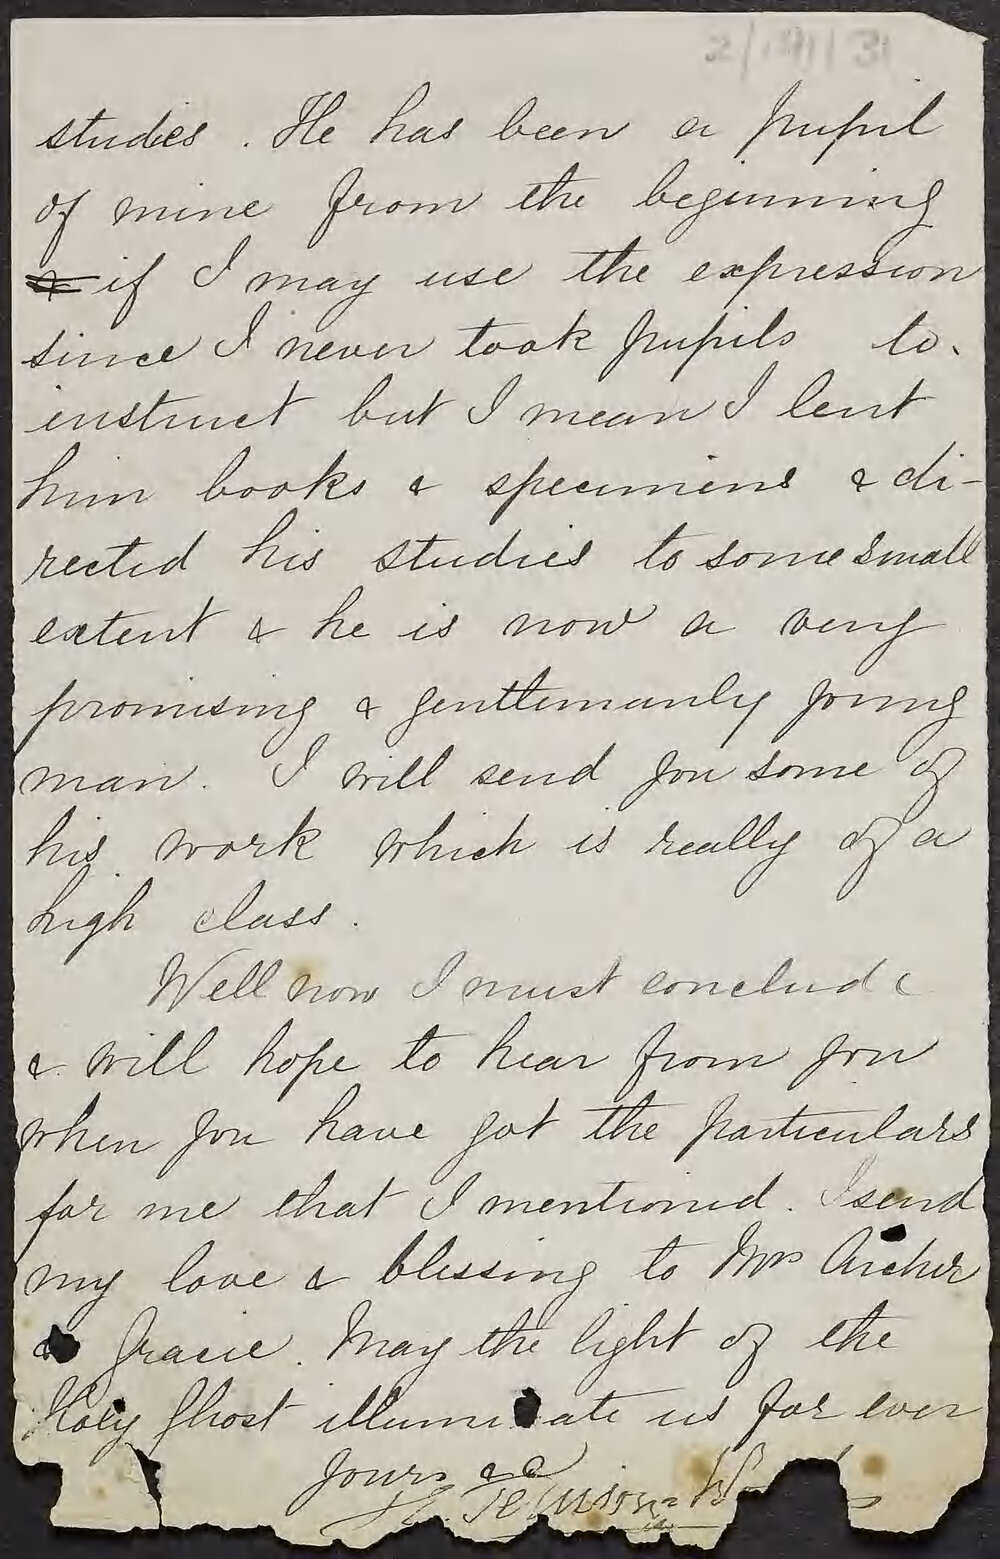 studies. He has been a pupil
of mine from the beginning
if I may use the expression
since I never took pupils to
instruct but I mean I lent
him books & specimens & di-
rected his studies to some small
extent & he is now a very
promising & gentlemanly young
man. I will send you some of
his work which is really of a
high class.
Well now I must conclude
& will hope to hear from you
when you have got the particulars
for me that I mentioned. I send
my love & blessing to Mrs Archer
& Gracie. May the light of the
Holy Ghost illuminate us for ever
Yours &c
Tenison